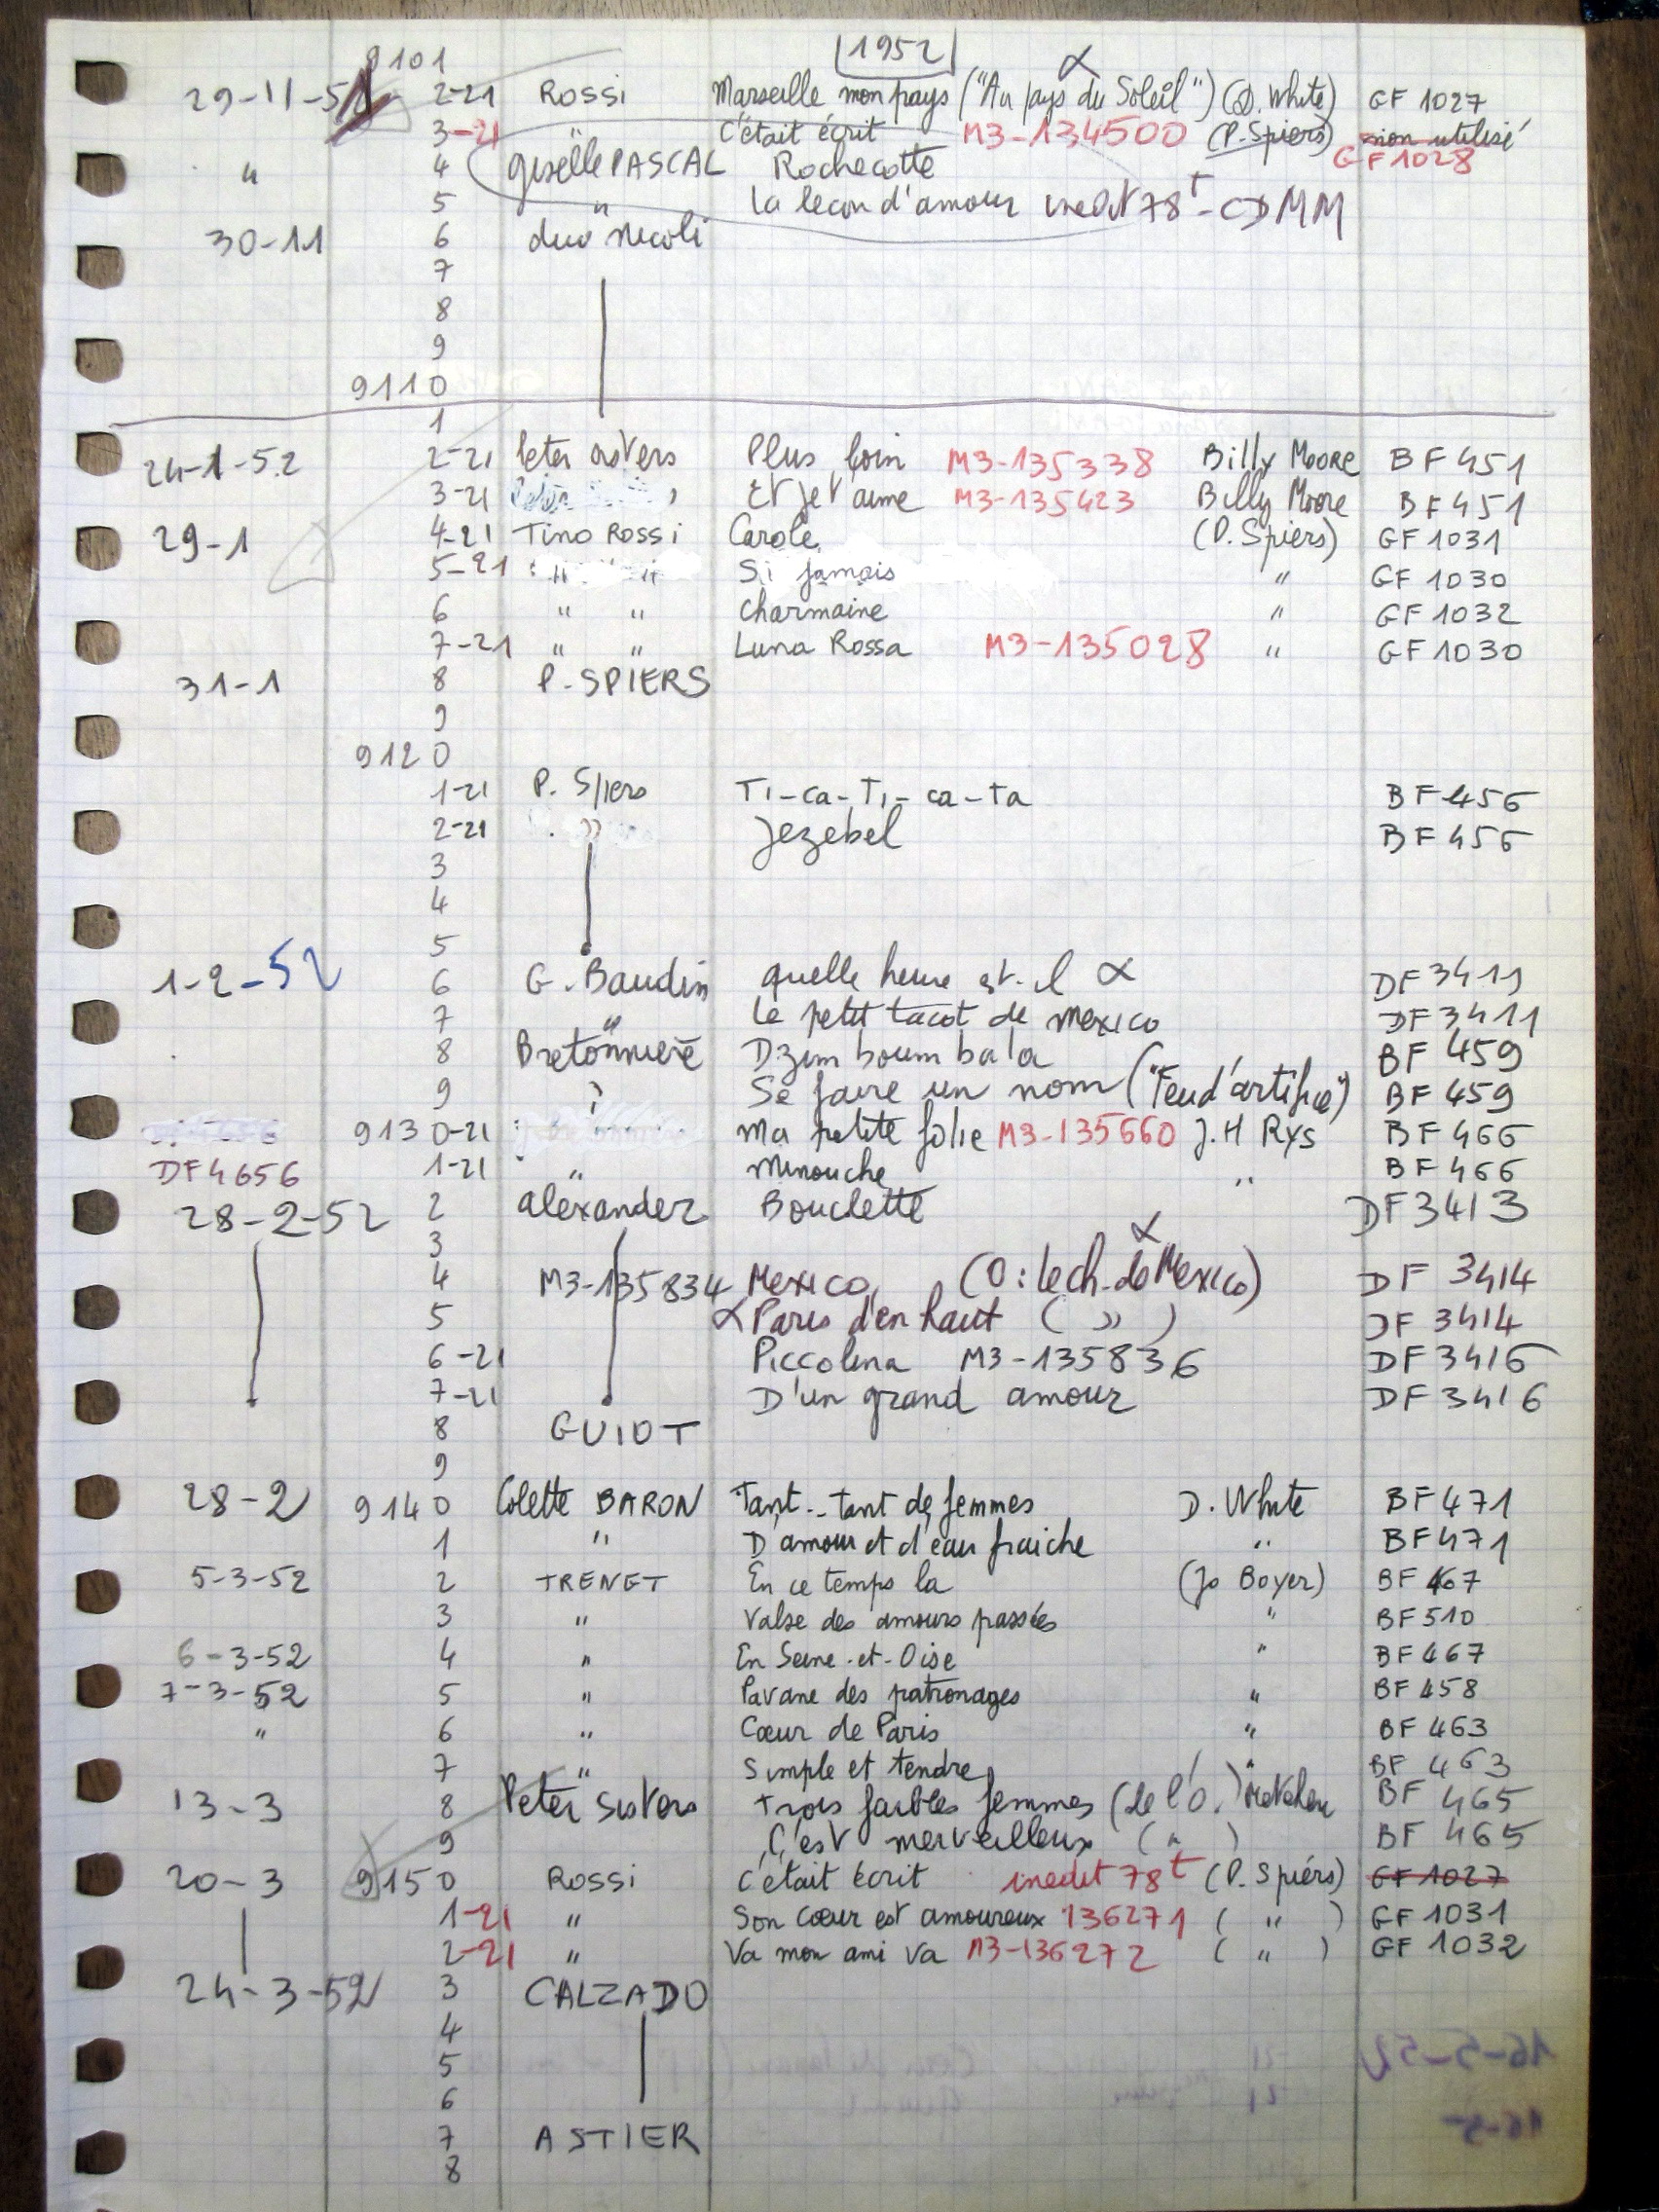 1952
9101
29-11-51 2-21 Rossi Marseille mon pays ("Au pays du Soleil") α (D. White) GF 1027
3-21 " C'était écrit M3-134500 (P. Spiers) non utilisé
" 4 giselle PASCAL Rochecotte GF1028
5 " La lecon d'amour inedit 78t - CD MM
30-11 6 duo Nicoli
7
8
9
9110
1
24-1-52 2-21 Peter sisters Plus loin M3-135338 Billy Moore BF 451
3-21 Et je t'aime M3-135423 Billy Moore BF 451
29-1 4-21 Tino Rossi Carole (P. Spiers) GF 1031
5-21 " " Si jamais " GF 1030
6 " " Charmaine " GF 1032
7-21 " " Luna Rossa M3-135028 " GF 1030
31-1 8 P. SPIERS
9
9120
1-21 P. Spiers Ti-ca-Ti-ca-ta BF 456
2-21 " Jezebel BF 456
3
4
5
1-2-52 6 G. Baudin quelle heure est-il α DF 3411
7 " Le petit tacot de Mexico DF 3411
8 Bretonnière Dzim boum bala BF 459
9 Se faire un nom ("Feu d'artifice") BF 459
9130-21 Ma petite folie M3-135660 J.H Rys BF 466
DF4656 1-21 " Minouche " BF 466
28-2-52 2 alexander Bouclette DF3413
3
4 M3-135834 Mexico (O: le ch. de Mexico) α DF 3414
5 α Paris d'en haut ( " ) DF 3414
6-21 Piccolina M3-135836 DF 3416
7-21 D'un grand amour DF 3416
8 GUIOT
9
28-2 9140 Colette BARON Tant.. tant de femmes D. White BF 471
1 " D'amour et d'eau fraiche " BF 471
5-3-52 2 TRENET En ce temps la (Jo Boyer) BF 467
3 " Valse des amours passées " BF 510
6-3-52 4 " En Seine-et-Oise " BF 467
7-3-52 5 " Pavane des patronages " BF 458
" 6 " Cœur de Paris " BF 463
7 " Simple et tendre " BF 463
13-3 8 Peter Sisters Trois faibles femmes (de l'o.) Metehen BF 465
9 C'est merveilleux ( " ) BF 465
20-3 9150 Rossi C'était écrit inedit 78t (P. Spiers) GF 1027
1-21 " Son cœur est amoureux 136271 ( " ) GF 1031
2-21 " Va mon ami va M3-136272 ( " ) GF 1032
24-3-52 3 CALZADO
4
5
6
7 ASTIER
8